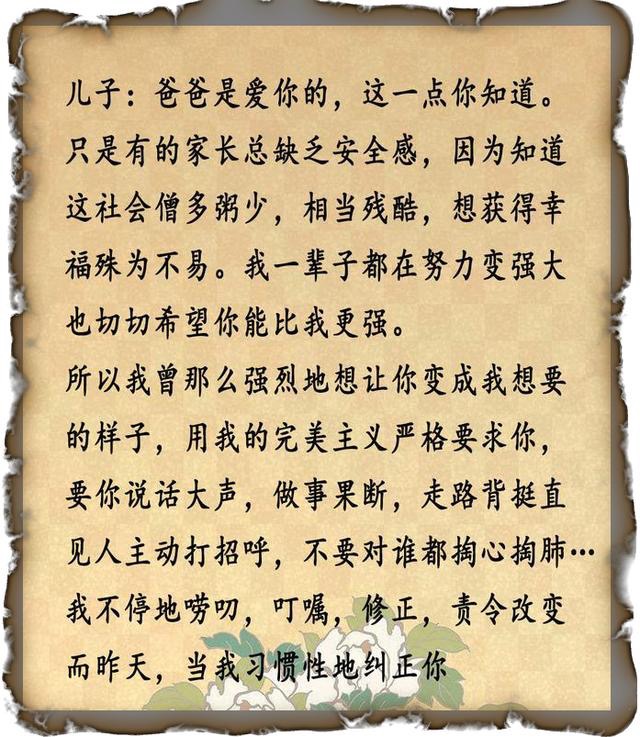 儿子：爸爸是爱你的，这一点你知道。
只是有的家长总缺乏安全感，因为知道
这社会僧多粥少，相当残酷，想获得幸
福殊为不易。我一辈子都在努力变强大
也切切希望你能比我更强。
所以我曾那么强烈地想让你变成我想要
的样子，用我的完美主义严格要求你，
要你说话大声，做事果断，走路背挺直
见人主动打招呼，不要对谁都掏心掏肺…
我不停地唠叨，叮嘱，修正，责令改变
而昨天，当我习惯性地纠正你